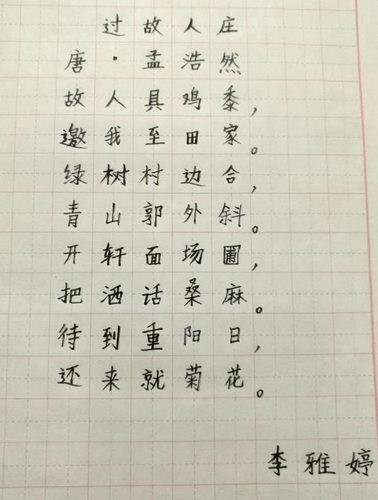 过故人庄
唐·孟浩然
故人具鸡黍，
邀我至田家。
绿树村边合，
青山郭外斜。
开轩面场圃，
把洒话桑麻。
待到重阳日，
还来就菊花。
李雅婷